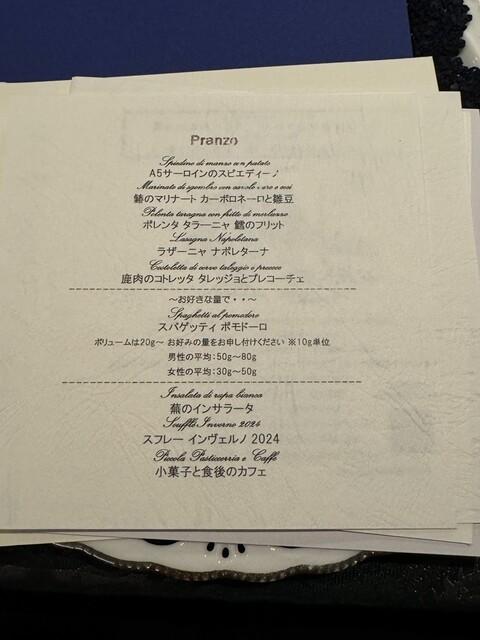 Pranzo
Spiedino di manzo con patate
A5サーロインのスピエディーノ
Marinato di sgombro con cavolo nero e ceci
鯖のマリナート カーボロネーロと雛豆
Polenta taragna con fritto di merluzzo
ポレンタ タラーニャ 鱈のフリット
Lasagna Napoletana
ラザーニャ ナポレターナ
Cotoletta di cervo taleggio e precoce
鹿肉のコトレッタ タレッジョとプレコーチェ
～お好きな量で・・～
Spaghetti al pomodoro
スパゲッティ ポモドーロ
ボリュームは20g～ お好みの量をお申し付けください ※10g単位
男性の平均：50g～80g
女性の平均：30g～50g
Insalata di rapa bianca
蕪のインサラータ
Soufflé Inverno 2024
スフレー インヴェルノ 2024
Piccola Pasticceria e Caffè
小菓子と食後のカフェ